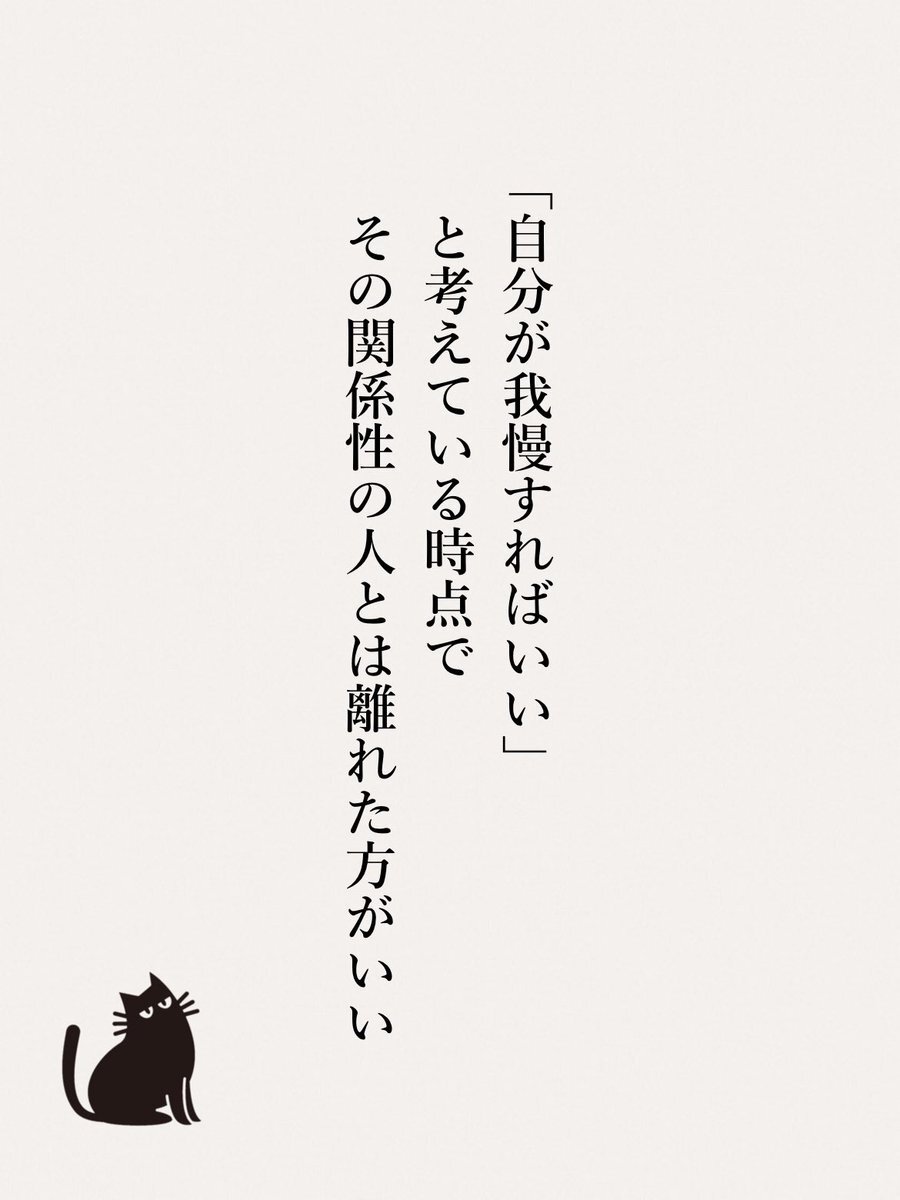 「自分が我慢すればいい」
と考えている時点で
その関係性の人とは離れた方がいい